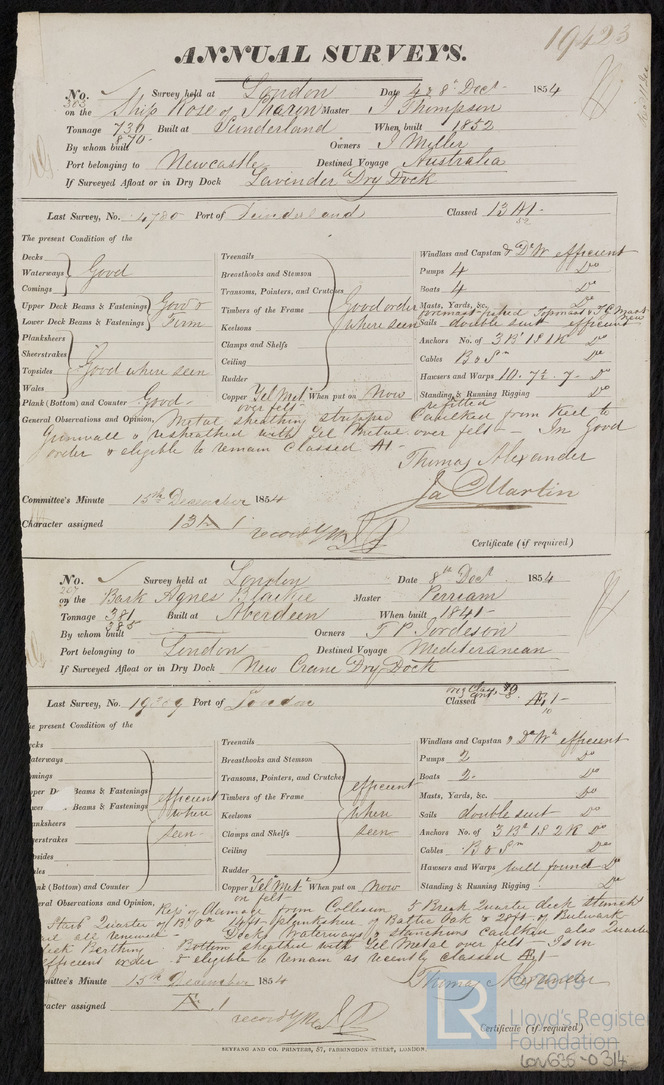 19423
ANNUAL SURVEYS.
No. 303 Survey held at London Date 4 & 8th Decr 1854
on the Ship Rose of Sharon Master J Thompson
Tonnage 736 870 Built at Sunderland When built 1852
By whom built Owners J Miller
Port belonging to Newcastle Destined Voyage Australia
If Surveyed Afloat or in Dry Dock Lavender Dry Dock
Last Survey, No. 4780 Port of Sunderland Classed 13 A1 - 52
The present Condition of the
Decks
Waterways } Good
Comings
Upper Deck Beams & Fastenings } Good &
Lower Deck Beams & Fastenings } Firm
Planksheers
Sheerstrakes
Topsides } Good where seen
Wales
Plank (Bottom) and Counter Good -
Treenails
Breasthooks and Stemson
Transoms, Pointers, and Crutches
Timbers of the Frame } Good order
Keelsons where seen
Clamps and Shelfs
Ceiling
Rudder
Copper Yel Metl over felt When put on Now
Windlass and Capstan & Do Wh efficient
Pumps 4 Do
Boats 4 Do
Masts, Yards, &c. Do
Sails double suit efficient
Anchors No. of 3 Br 1 S 1 K Do
Cables B & Sm Do
Hawsers and Warps 10. 7½. 7 - Do
Standing & Running Rigging refitted Do
General Observations and Opinion, Metal sheathing stripped Caulked from Keel to
Gunwall & resheathed with Yel Metal over felt - In Good
order & eligible to remain Classed A1 -
Thomas Alexander
Jas Martin
Committee's Minute 15th December 1854
Character assigned 13 A 1
Certificate (if required)
No. 207 Survey held at London Date 8th Decr 1854
on the Bark Agnes Blaikie Master Perriam
Tonnage 381 385 Built at Aberdeen When built 1841 -
By whom built Owners F P Fordeson
Port belonging to London Destined Voyage Mediteranean
If Surveyed Afloat or in Dry Dock New Crane Dry Dock
Last Survey, No. 19309 Port of London Classed Æ 1 - 10
he present Condition of the
ecks
aterways
omings
pper Deck Beams & Fastenings } efficient
wer Deck Beams & Fastenings where
anksheers seen -
eerstrakes
psides
ales
ank (Bottom) and Counter
Treenails
Breasthooks and Stemson
Transoms, Pointers, and Crutches
Timbers of the Frame } efficient
Keelsons when
Clamps and Shelfs seen
Ceiling
Rudder
Copper Yel Metl on felt When put on Now
Windlass and Capstan & Do Wh efficient
Pumps 2 Do
Boats 2. Do
Masts, Yards, &c. Do
Sails double suit Do
Anchors No. of 3 Br 1 S 2 K Do
Cables B & Sm Do
Hawsers and Warps Well found Do
Standing & Running Rigging Do
eral Observations and Opinion, Repg of damage from Collision 5 Break Quarter deck stanch
Starb Quarter of Upper planksheer of Baltic Oak & 20ft of Bulwark
ail all renewed - Decks Waterways & stanchions caulked also Quarter
eck Berthing - Bottom sheathed with Yel Metal over felt - Is in
efficient order & eligible to remain as recently classed Æ 1 -
Thomas Alexander
mittee's Minute 15th December 1854
racter assigned Æ 1
Certificate (if required)
SEYFANG AND CO. PRINTERS, 57, FARRINGDON STREET, LONDON.
© 2019
LR
Lloyd's Register
Foundation
LON635-0314